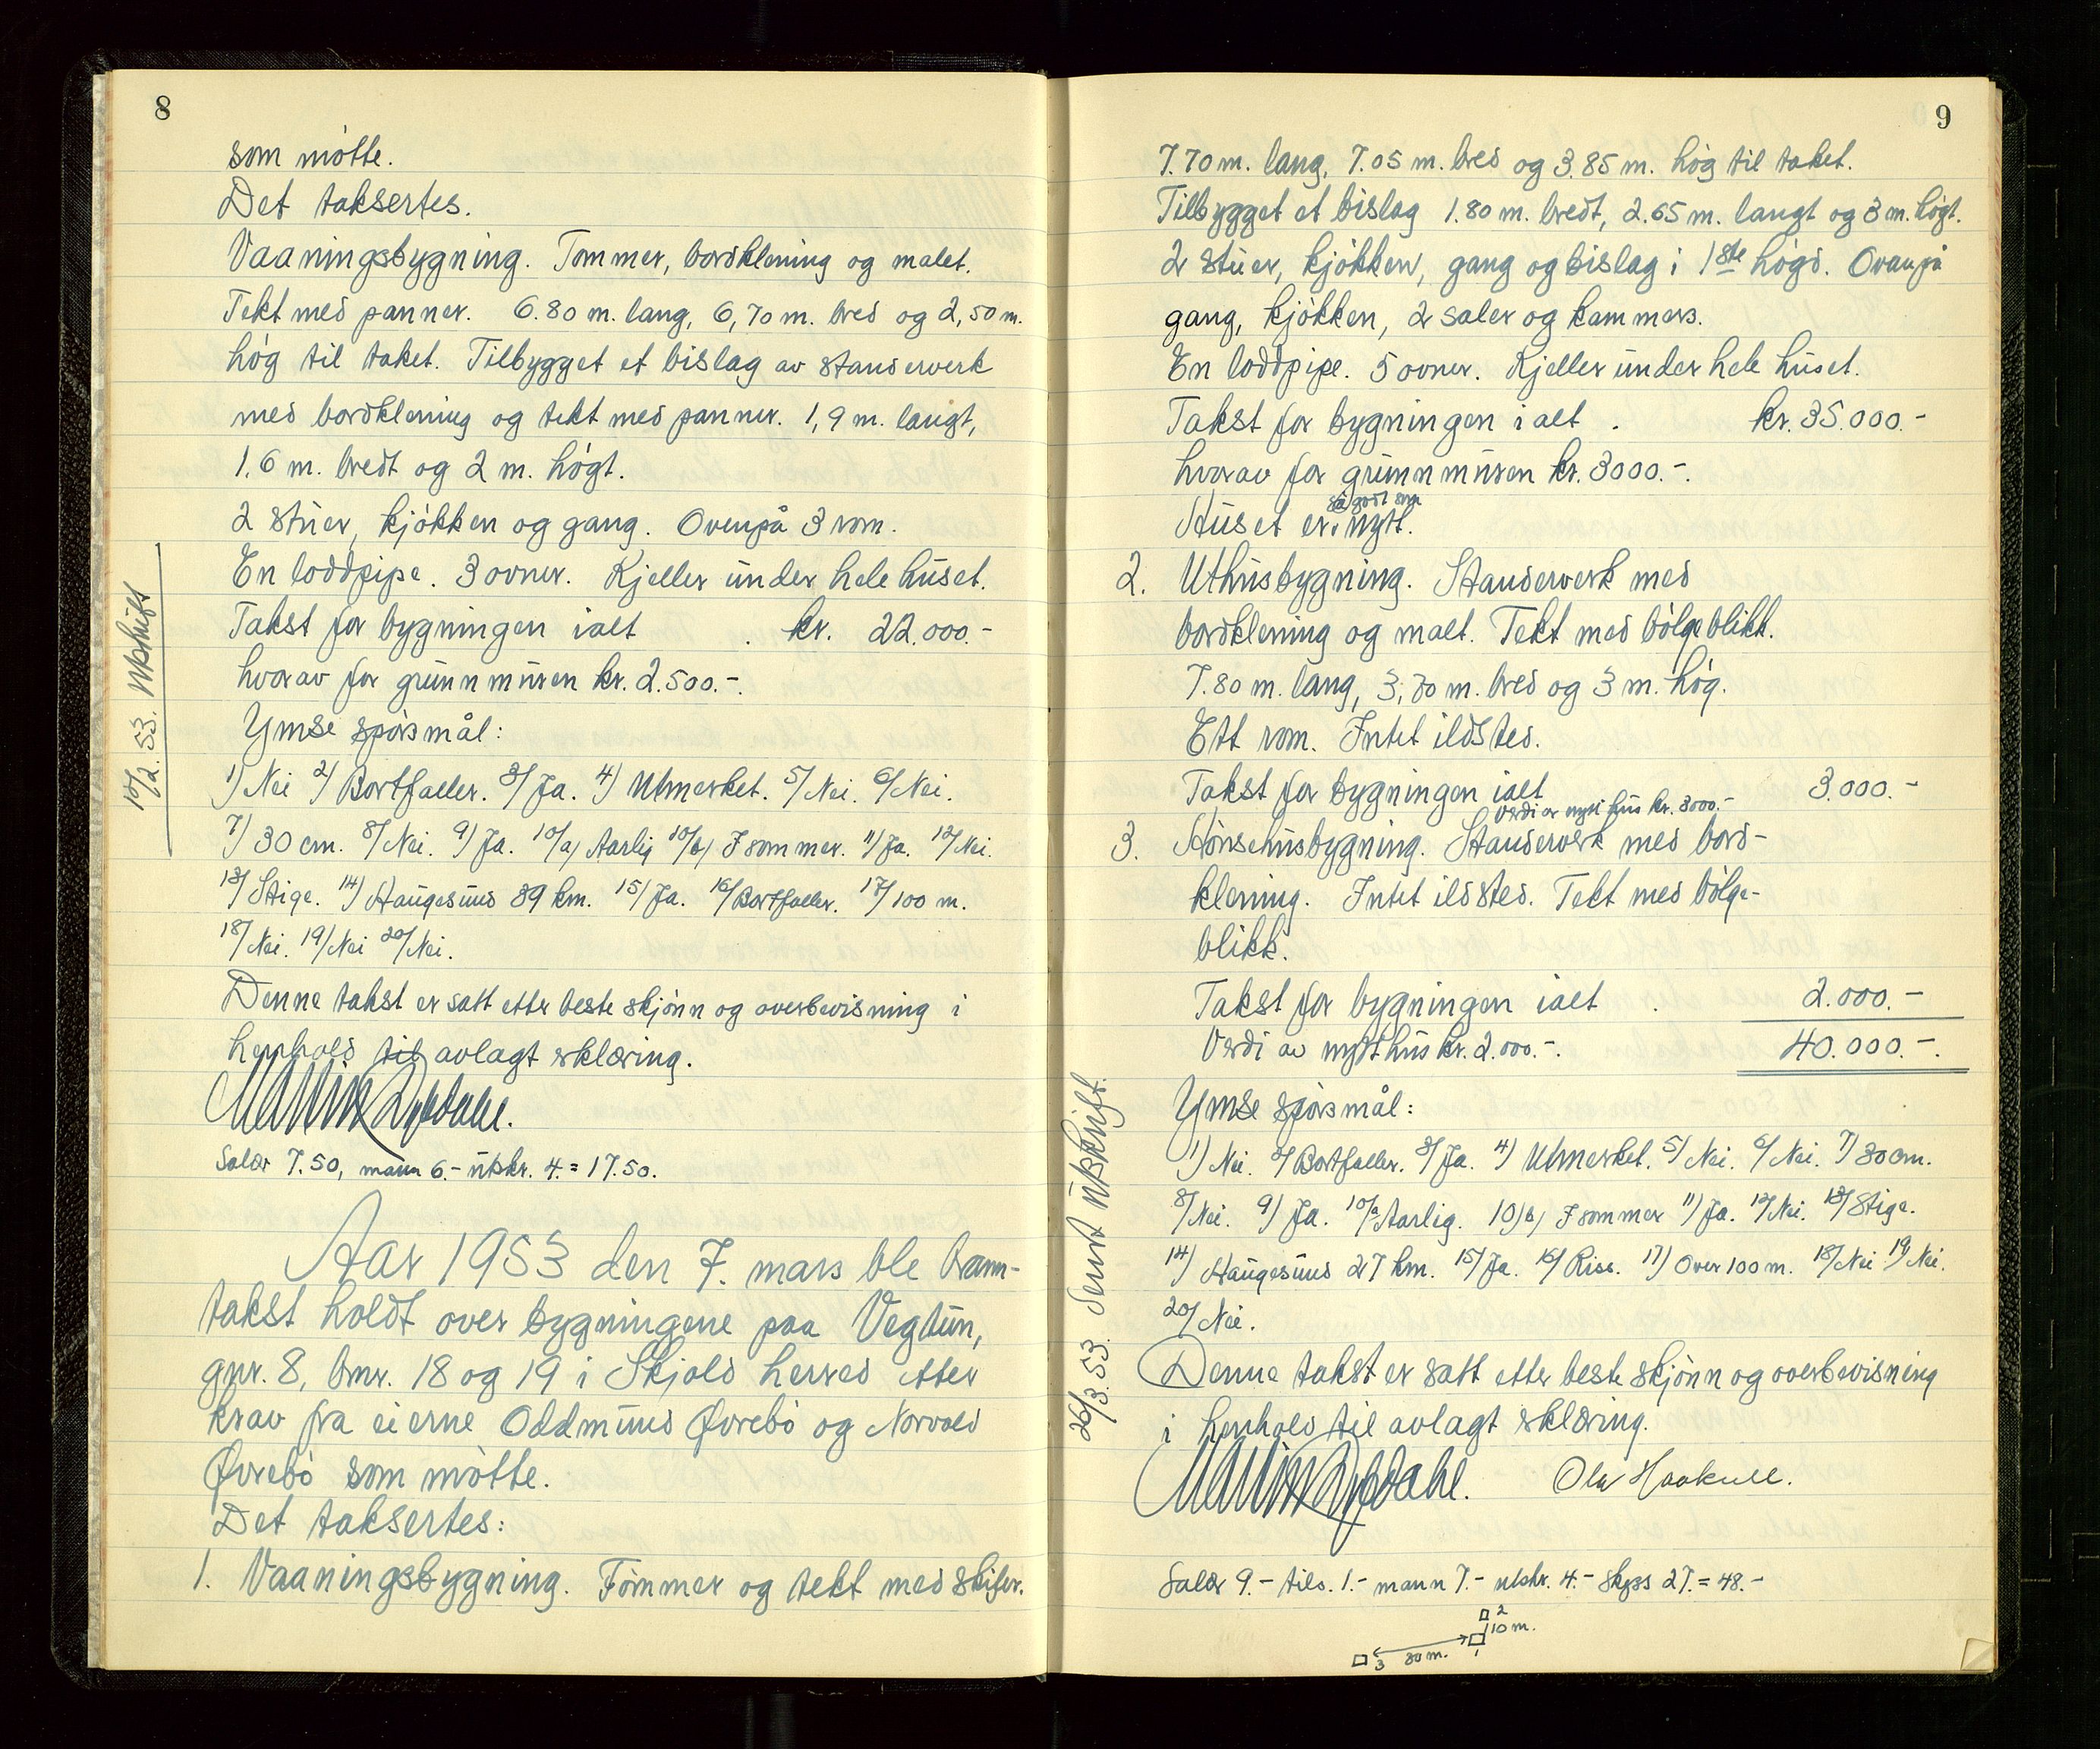 8
som møtte.
Det taksertes.
Vaaningsbygning. Tømmer, bordklening og malet.
Tekt med panner. 6.80 m. lang, 6,70 m. bred og 2,50 m.
høg til taket. Tilbygget et bislag av standerverk
med bordklening og tekt med panner. 1,9 m. langt,
1.6 m. bredt og 2 m. høgt.
2 stuer, kjøkken og gang. Ovenpå 3 rom.
En loddpipe. 3 ovner. Kjeller under hele huset.
Takst for bygningen ialt . kr. 22.000.-
hvorav for grunnmuren kr. 2.500.-.
Ymse spørsmål:
1) Nei 2) Bortfaller. 3) Ja. 4) Utmerket. 5/ Nei. 6/ Nei.
7) 30 cm. 8/ Nei. 9) Ja. 10/a) Aarlig 10/b) I sommer. 11) Ja. 12/ Nei.
13/ Stige. 14) Haugesund 39 km. 15) Ja. 16/ Bortfaller. 17/ 100 m.
18/ Nei. 19/ Nei 20/ Nei.
Denne takst er satt etter beste skjønn og overbevisning i
henhold til avlagt erklæring.
Martin Dybdahl.
Salær 7.50, mann 6.- utskr. 4. = 17.50.
Aar 1953 den 7. mars ble brann-
takst holdt over bygningene paa Vegtun,
gnr. 8, bnr. 18 og 19 i Skjold herred etter
krav fra eierne Oddmund Øvrebø og Norvald
Øvrebø som møtte.
Det taksertes:
1. Vaaningsbygning. Tømmer og tekt med skifer.
9
7.70 m. lang, 7.05 m. bred og 3.85 m. høg til taket.
Tilbygget et bislag 1.80 m. bredt, 2.65 m. langt og 3 m. høgt.
2 stuer, kjøkken, gang og bislag i 1ste høgd. Ovanpå
gang, kjøkken, 2 saler og kammers.
En loddpipe. 5 ovner. Kjeller under hele huset.
Takst for bygningen ialt . kr. 35.000.-
hvorav for grunnmuren kr. 3000.-.
så godt som
Huset er nytt.
2. Uthusbygning. Standerverk med
bordklening og malt. Tekt med bølgeblikk.
7.80 m. lang, 3,70 m. bred og 3 m. høg.
Ett rom. Intet ildsted.
Takst for bygningen ialt 3.000.-
Verdi av nytt hus kr. 3000.-
3. Hønsehusbygning. Standerverk med bord-
klening. Intet ildsted. Tekt med bølge-
blikk.
Takst for bygningen ialt . 2.000.-
Verdi av nytt hus kr. 2.000.-. 40.000.-.
Ymse spørsmål:
1) Nei. 2/ Bortfaller. 3/ Ja. 4) Utmerket. 5/ Nei. 6/ Nei. 7) 30 cm.
8/ Nei. 9) Ja. 10/a Aarlig. 10/b) I sommer 11) Ja. 12/ Nei. 13/ Stige.
14) Haugesund 27 km. 15/ Ja. 16/ Risc. 17) Over 100 m. 18/ Nei 19) Nei.
20/ Nei.
Denne takst er satt etter beste skjønn og overbevisning
i henhold til avlagt erklæring.
Martin Dybdahl. Ola
Salær 9.- tils. 1.- mann 7.- utskr. 4.- skyss 27. = 48.-
2
10 m.
1
3 80 m.
53. utskrift
26/3. 53. Sendt utskrift.